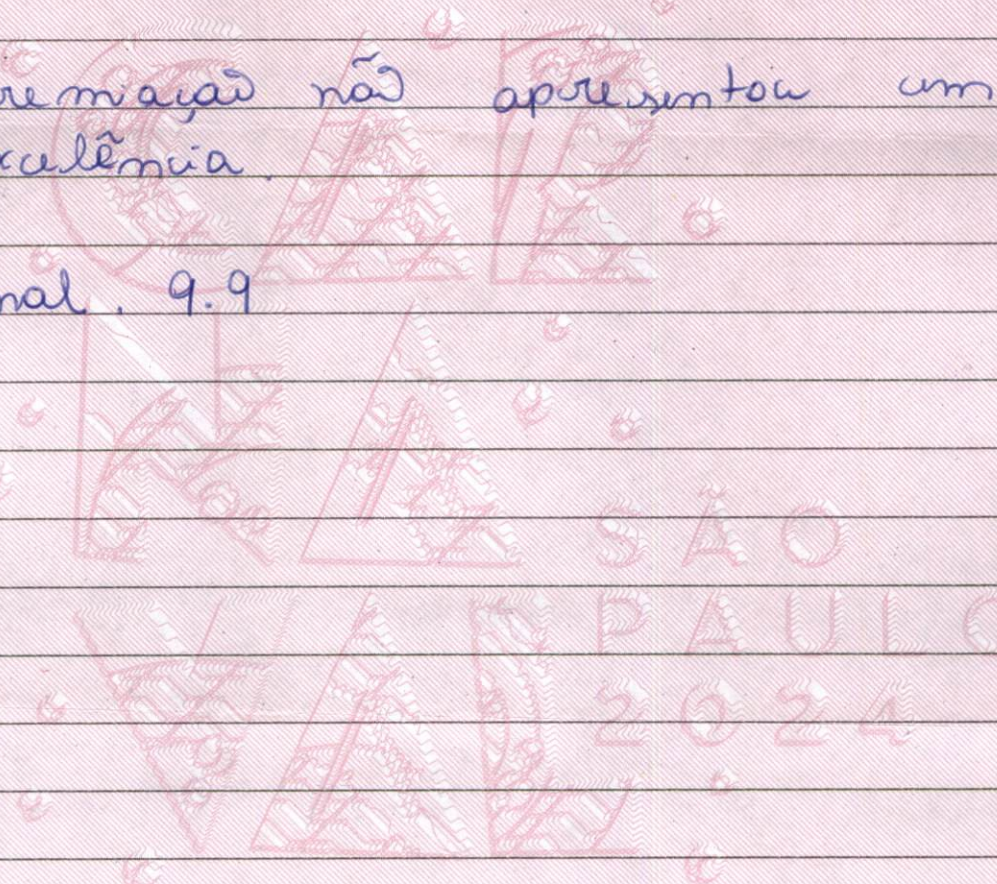 remiação não apresentou um
xcelência.
nal. 9.9
CAR
NA
VAL
SÃO
PAULO
2024